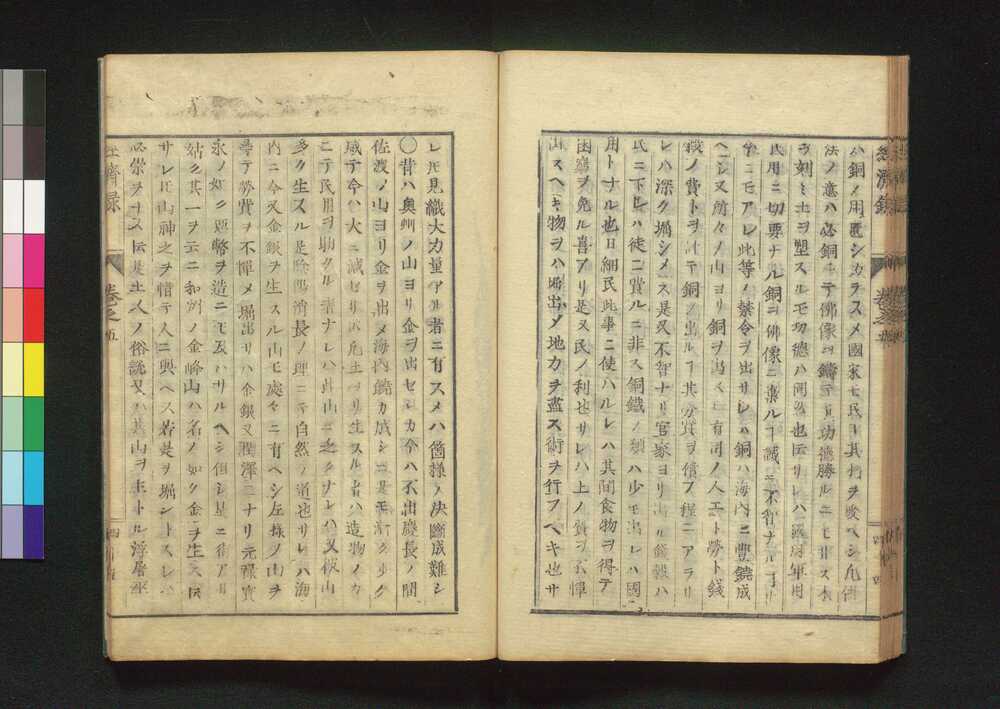 ハ銅ノ用匱シカラスメ國家モ民モ其利ヲ蒙ヘシ凡佛
法ノ意ハ必銅ニテ佛像ヲ鑄テモ功德勝ルニモ非ス木
ヲ刻ミ土ヲ塑スルモ功德ハ同然也
民用ニ切要ナル銅ヲ佛像ニ棄ルヿ誠ニ不智ナルヿ
ニモアレ此等ノ禁令ヲ出サレハ銅ハ海内ニ豐饒成
ヘシ又所々ノ山ヨリ銅ヲ出スニ有司ノ人工ト勞ト錢
穀ノ費トヲ計テ銅ノ出ルヿ其分ヲ償フ程ニアラサ
レハ深ク堀シメス是又不智ナリ官家ヨリ出ル錢穀ハ
民ニ下レハ徒ニ費ルニ非ス銅鐵ノ類ハ少モ出レハ國
用トナル也且細民此事ニ使ハルレハ其間食物ヲ得テ
困窮ヲ免ル喜アリ是又民ノ利也サレハ上ノ費ヲ不憚
出スヘキ物ヲハ堀出シ地力ヲ盡ス術ヲ行フヘキ也サ
レ𪜈見識大力量アル者ニ有スメハ箇様ノ決斷成難シ
〇昔ハ奥州ノ山ヨリ金ヲ出セシカ今ハ不出慶長ノ間
佐渡ノ山ヨリ金ヲ出メ海内饒カ成シニ是モ漸々少ク
成テ今ハ大ニ減セリ凡山ヨリ生スル者ハ造物ノカ
ニテ民用ヲ助クル者ナレハ此山ニ乏クナレハ又彼山
多ク生スル是陰陽消長ノ理ニテ自然ノ道也サレハ海
内ニ今又金銀ヲ生スル山モ處々ニ有ヘシ左様ノ山ヲ
尋テ勞費ヲ不憚メ堀出サハ金銀又潤澤ニナリ元祿寶
永ノ如ク惡幣ヲ造ニモ及ハサルヘシ但シ是ニ術アリ
姑ク其一ヲ云ニ和州ノ金峰山ハ名ノ如ク金ヲ生ス
サレ𪜈山神之ヲ惜テ人ニ與ヘス若是ヲ堀ントスレハ
必祟ヲナス云是土人ノ俗說又ハ其山ヲ主トル浮屠巫
經濟録
卷之五